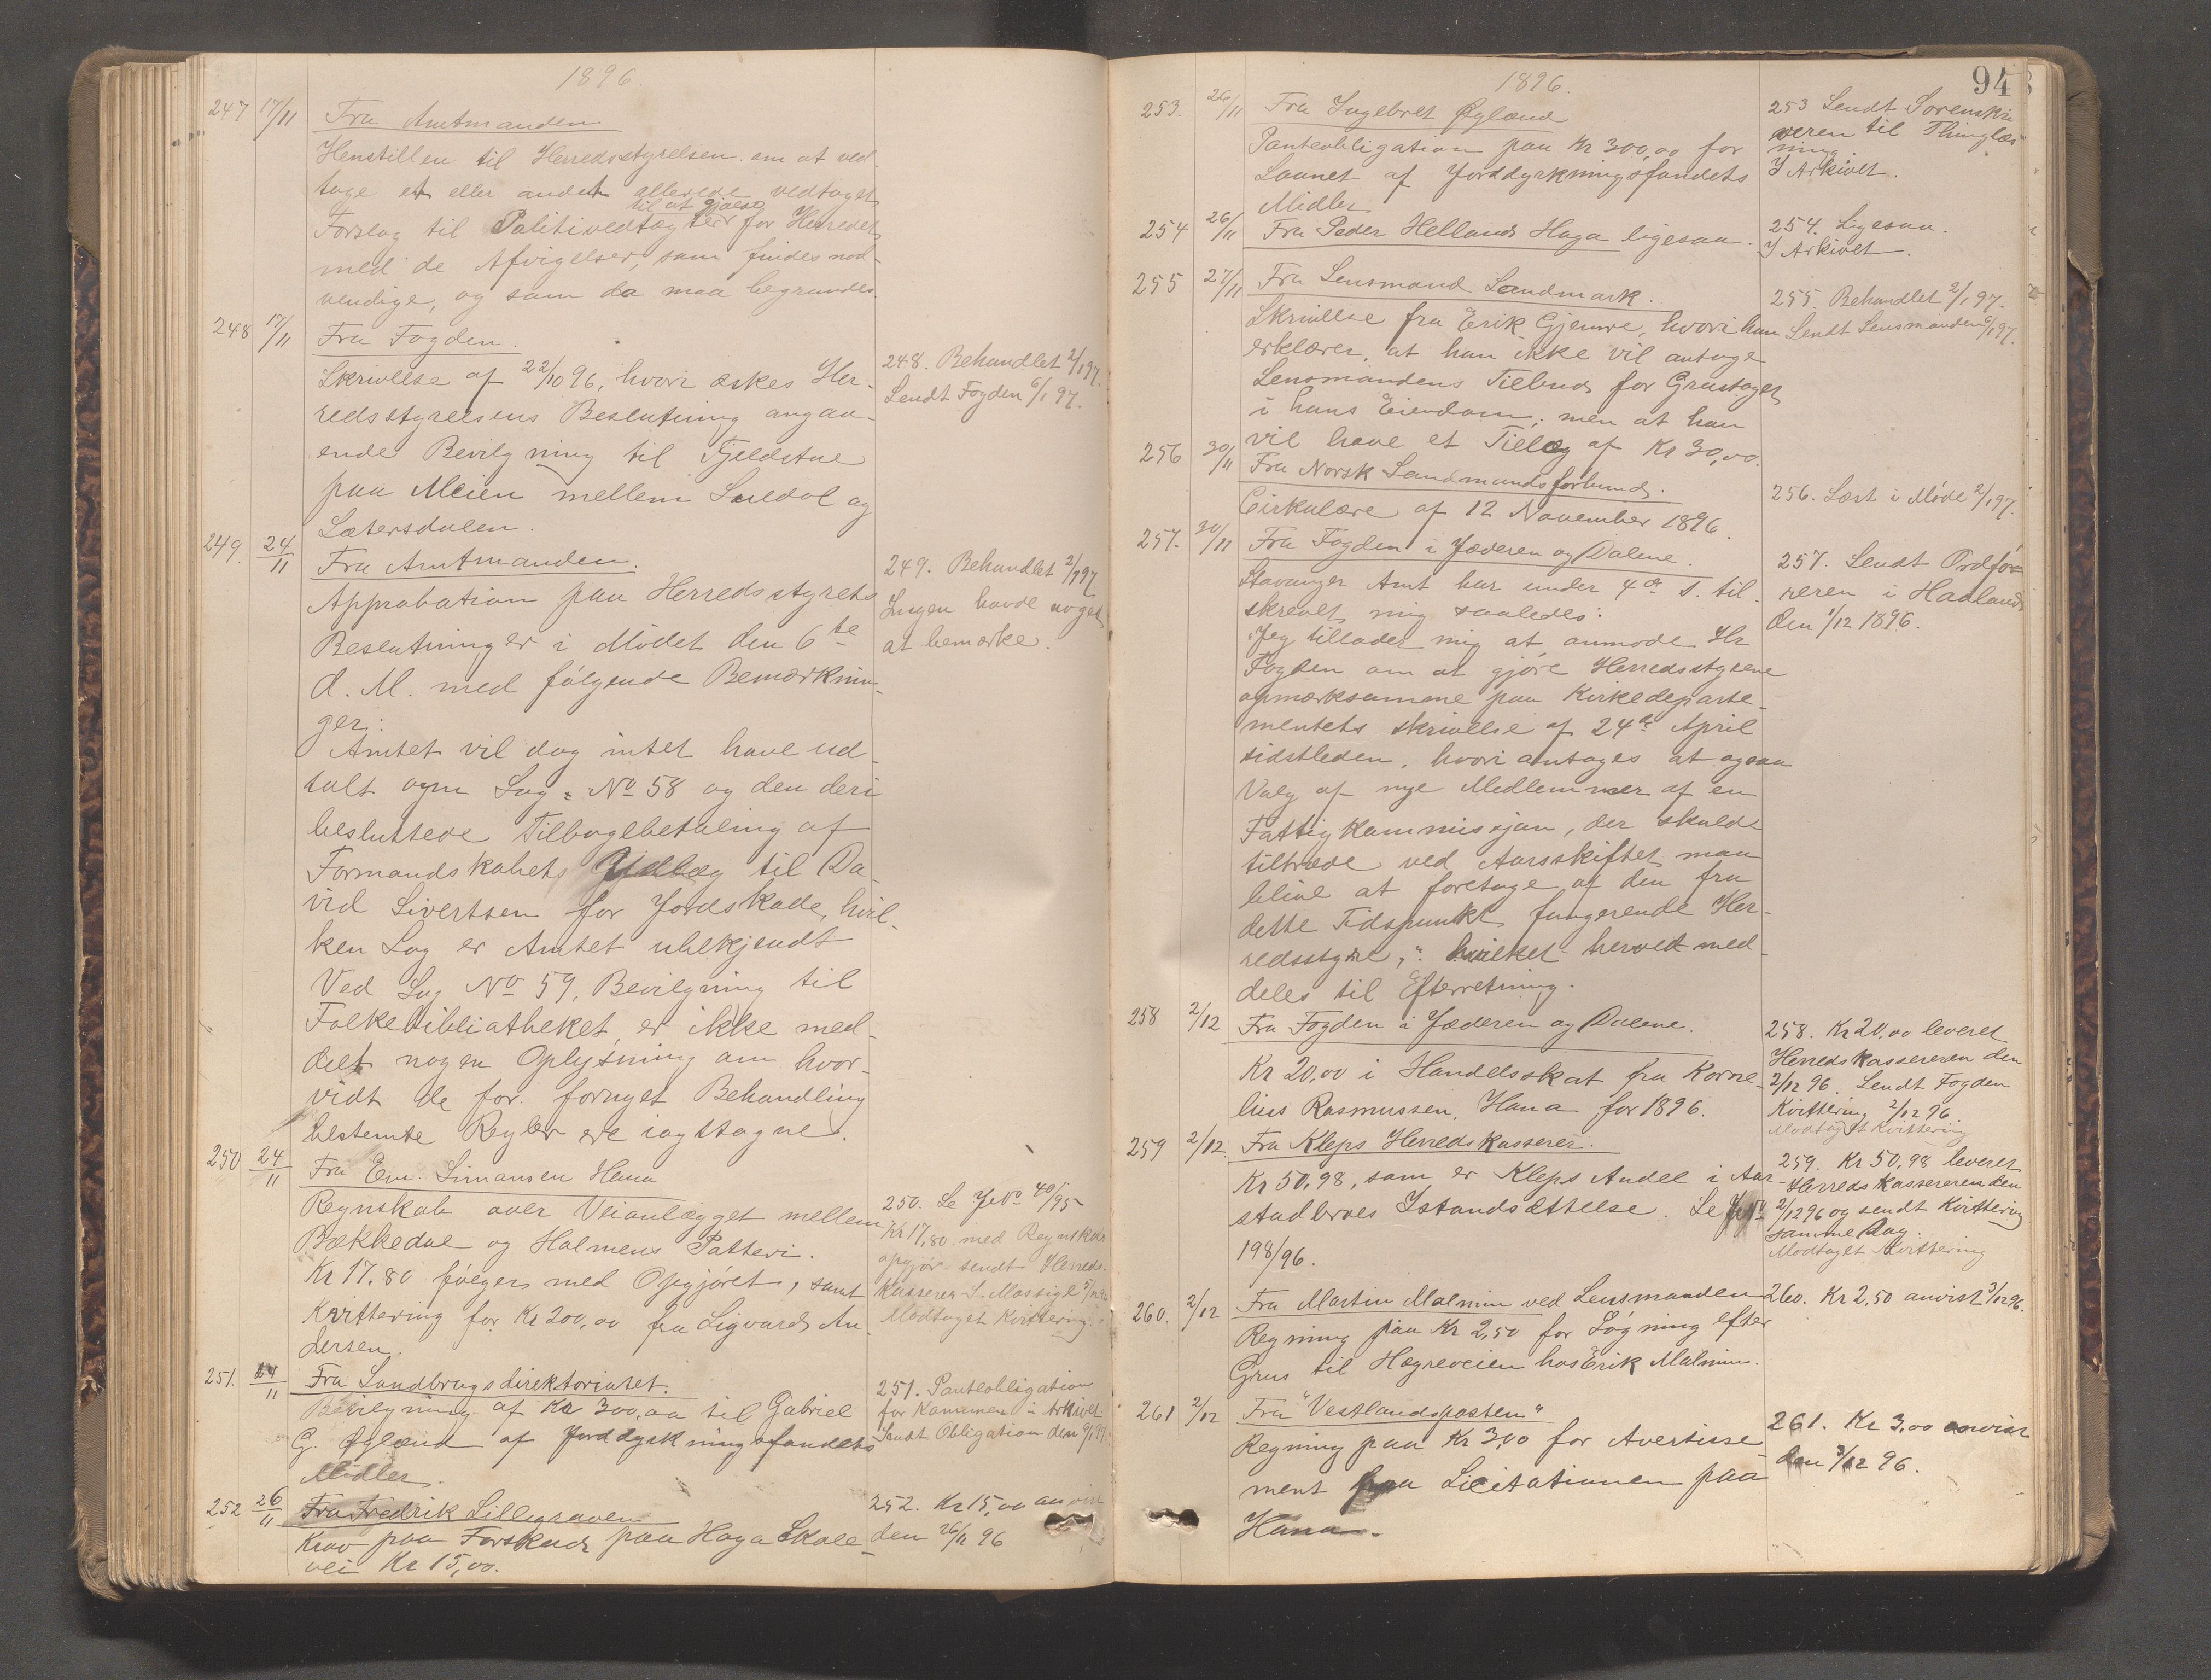 1896.
247 17/11 Fra Amtmanden
Henstillen til Herredsstyrelsen om at ved-
tage et eller andet allerede vedtaget
til at gjælde
Forslag til Politivedtægter for Herredet
med de Afvigelser, som findes nød-
vendige, og som da maa begrundes.
248 17/11 Fra Fogden.
Skrivelse af 22/10 96, hvori æskes Her-
redsstyrelsens Beslutning angaa-
ende Bevilgning til Fjeldstue
paa Meien mellem Suldal og
Sætersdalen.
248. Behandlet 2/1 97.
Sendt Fogden 6/1 97.
249. 24/11 Fra Amtmanden.
Approbation paa Herredsstyrets
Beslutninger i Mødet den 6te
d. M. med følgende Bemærknin-
ger:
Amtet vil dog intet have ud-
talt om Sag No 58 og den deri
besluttede Tilbagebetaling af
Formandskabets Udlæg til Da-
vid Sivertsen for Jordskade, hvil-
ken Sag er Amtet ubekjendt
Ved Sag No 59, Bevilgning til
Folkebibliotheket, er ikke med-
delt nogen Oplysning om hvor-
vidt de for fornyet Behandling
bestemte Regler ere iagttagne.
249. Behandlet 2/1 97
Ingen havde noget
at bemærke.
250 24/11 Fra Em. Simonsen Hana
Regnskab over Veianlægget mellem
Bækkedal og Holmens Potteri.
Kr 17.80 følger med Opgjøret, samt
Kvittering for Kr 200,00 fra Sigvard An-
dersen.
250. Se J No 40/95
Kr 17,80 med Regnskabs
opgjør sendt Herreds-
kasserer S. Mossige
Modtaget Kvittering.
251. 24/11 Fra Landbrugsdirektoriatet.
Bevilgning af Kr 300,00 til Gabriel
G. Øglænd af Jorddyrkningsfondets
Midler.
251. Panteobligation
for Kommunen i Arkivet
Sendt Obligation den
252 26/11 Fra Fredrik Lillegraven
Krav paa Forskud paa Hoga Skole-
vei Kr 15,00.
252. Kr 15,00 anvist
den 26/11 96
94
1896.
253. 26/11 Fra Ingebret Øglænd
Panteobligation paa Kr 300,00 for
Laanet af Jorddyrkningsfondets
Midler
253 Sendt Sorenskri
veren til Thinglæs-
ning.
I Arkivet.
254 26/11 Fra Peder Hellands Hoga ligesaa.
254. Ligesaa.
I Arkivet.
255 27/11 Fra Lensmand Landmark.
Skrivelse fra Erik Gjemre, hvori han
erklærer, at han ikke vil antage
Lensmandens Tilbud for Grustaget
i hans Eiendom, men at han
vil have et Tillæg af Kr 30,00.
255. Behandlet 2/1 97.
Sendt Lensmanden 6/1 97.
256 30/11 Fra Norsk Landmandsforbund.
Cirkulære af 12 November 1896.
256. Læst i Møde 2/1 97.
257. 30/11 Fra Fogden i Jæderen og Dalene.
Stavanger Amt har under 4de d. til-
skrevet mig saaledes:
"Jeg tillader mig at anmode Hr
Fogden om at gjøre Herredsstyrene
opmærksomme paa Kirkedeparte-
mentets skrivelse af 24de April
sidstleden, hvori antages at ogsaa
Valg af nye Medlemmer af en
Fattigkommissjon, der skulde
tiltræde ved Aarsskiftet maa
blive at foretage af den fra
dette Tidspunkt fungerende Her-
redsstyre," hvilket herved med-
deles til Efterretning.
257. Sendt Ordfø-
reren i Haaland
den 1/12 1896.
258 2/12 Fra Fogden i Jæderen og Dalene.
Kr 20,00 i Handelsskat fra Korne-
lius Rasmussen, Hana for 1896.
258. Kr 20,00 leveret
Herredskassereren den
2/12 96. Sendt Fogden
Kvittering 2/12 96
Modtaget Kvittering
259 2/12. Fra Kleps Herredskasserer.
Kr 50,98, som er Kleps Andel i Aar-
stadbroes Istandsættelse. Se J No
198/96.
259. Kr 50,98 leveret
Herredskassereren den
2/12 96 og sendt Kvittering
samme Dag.
Modtaget Kvittering
260. 2/12 Fra Martin Malmin ved Lensmanden
Regning paa Kr 2,50 for Søgning efter
Grus til Høgreveien hos Erik Malmin.
260. Kr 2,50 anvist 3/12 96.
261 2/12 Fra "Vestlandsposten"
Regning paa Kr 3,00 for Avertisse-
ment fra Licitationen paa
Hana.
261. Kr 3,00 anvist
den 3/12 96.